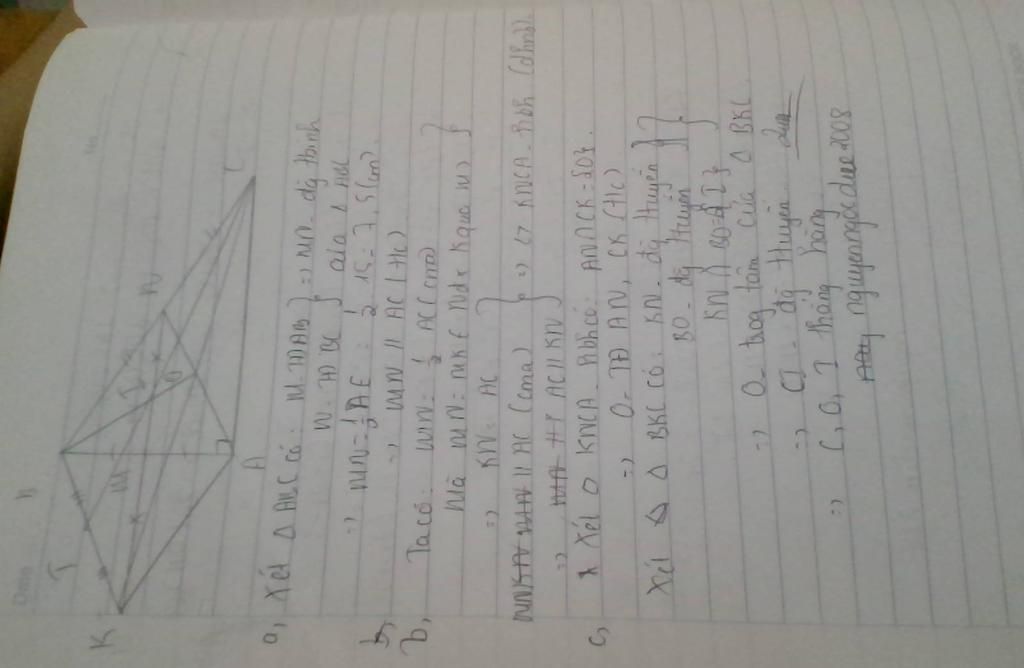 B
T
K
M
I
N
O
A
C
a, Xét Δ ABC có: M- TĐ AB } => MN- đg tbình
N- TĐ BC } của Δ ABC
=> MN = 1/2 AC = 1/2 15 = 7,5 (cm)
=> MN // AC (t/c)
b, Ta có: MN = 1/2 AC (cmt)
Mà MN = MK ( N đx K qua M) }
=> KN = AC
MN // AC (cma)
=> AC // KN } => KNCA - hbh (dhnb).
c, Xét KNCA - hbh có: AN ∩ CK = {O}
=> O- TĐ AN, CK (t/c)
Xét Δ BKC có: KN- đg tuyến
BO- đg tuyến
KN ∩ BO = {I}
=> O- trọg tâm của Δ BKC
=> CI - đg tuyến
=> C, O, I thẳng hàng
nguyenngocdue2008